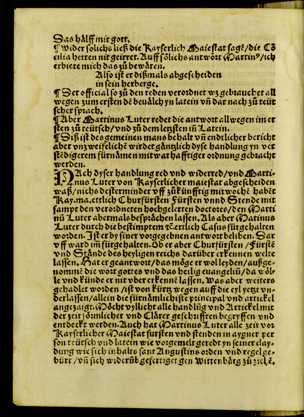 Das hälff mit gott.
¶ Wider sölichs ließ die Kayserlich Maiestat sagē/die Cō
cilia hetten nit geirret. Auff sölichs antwort Martinꝰ/ich
erbiete mich das zu bewären.
Also ist er dißmals abgescheiden
in sein herberge.
¶ Der official so zu den reden verordnet wz gebrauchet all
wegen zum ersten dē in latein vnd dar nach zu teüt
scher sprach.
¶ Aber Martinus Luter redet die antwort allwegen im er
sten zu teütsch/vnd zu dem lersten in Latein.
¶ Diß ist des gemeinen mans behalt vñ endtlicher bericht
aber vnzweifelich wirt der gäntzlich dyse handlung yn ver
stēdigerem fürnāmen mit warhafftiger ordnung gebracht
werden.
Nach dyser handlung red vnd widerred/vnd Marti
nus Luter von Kayserlicher maiestat abgescheiden
was/nichs destermind er vff zukünfftig mitwoche habē
Kay.ma.ectlich Churfürsten Fürsten vnnd Stende mit
sampt den verordneten hochgelerten doctores/den Marti
nū Luter abermals besprächen lassen. Als aber Martinus
Luter durch die bestimptem Ectlich Casus fürgehalten
worden. Ist er bey seiner vorgeschriben antwort beliben. Dar
vff ward im fürgehalten. Ob er aber Churfürsten/Fürstē
vnd Stände des heyligen reichs darüber erkennen welte
lassen. Hat er geantwort/das möge er wol leyden/außge-
nommē die wort gottes vnd das heylig euangeliū/da wöl-
le vnd künde er nit vber erkennē lassen. Was aber weiters
gehādlet worden/ist von kürtz wegen auff die eyl yetz vn-
derlassen/allein die fürnämlichiste principal vnd artickel
angezaigt. Möcht vyllicht alle handlūg vnd Artickel mit
der zeit formlicher vnd clärer geschrifften begryffen vnd
entdeckt werden. Auch hat Martinus Luter alle zeit vor
Kayserlicher Maiestat fürsten vnd stenden in aygner per
son teütsch vnd latein wie vorgemelt geredt yn seiner clay
dung wie sich in halts sant Augustins orden vnd regel ge-
bürt/vñ sich widerūb gefertiget gen Wittenbürg zu ziehē.